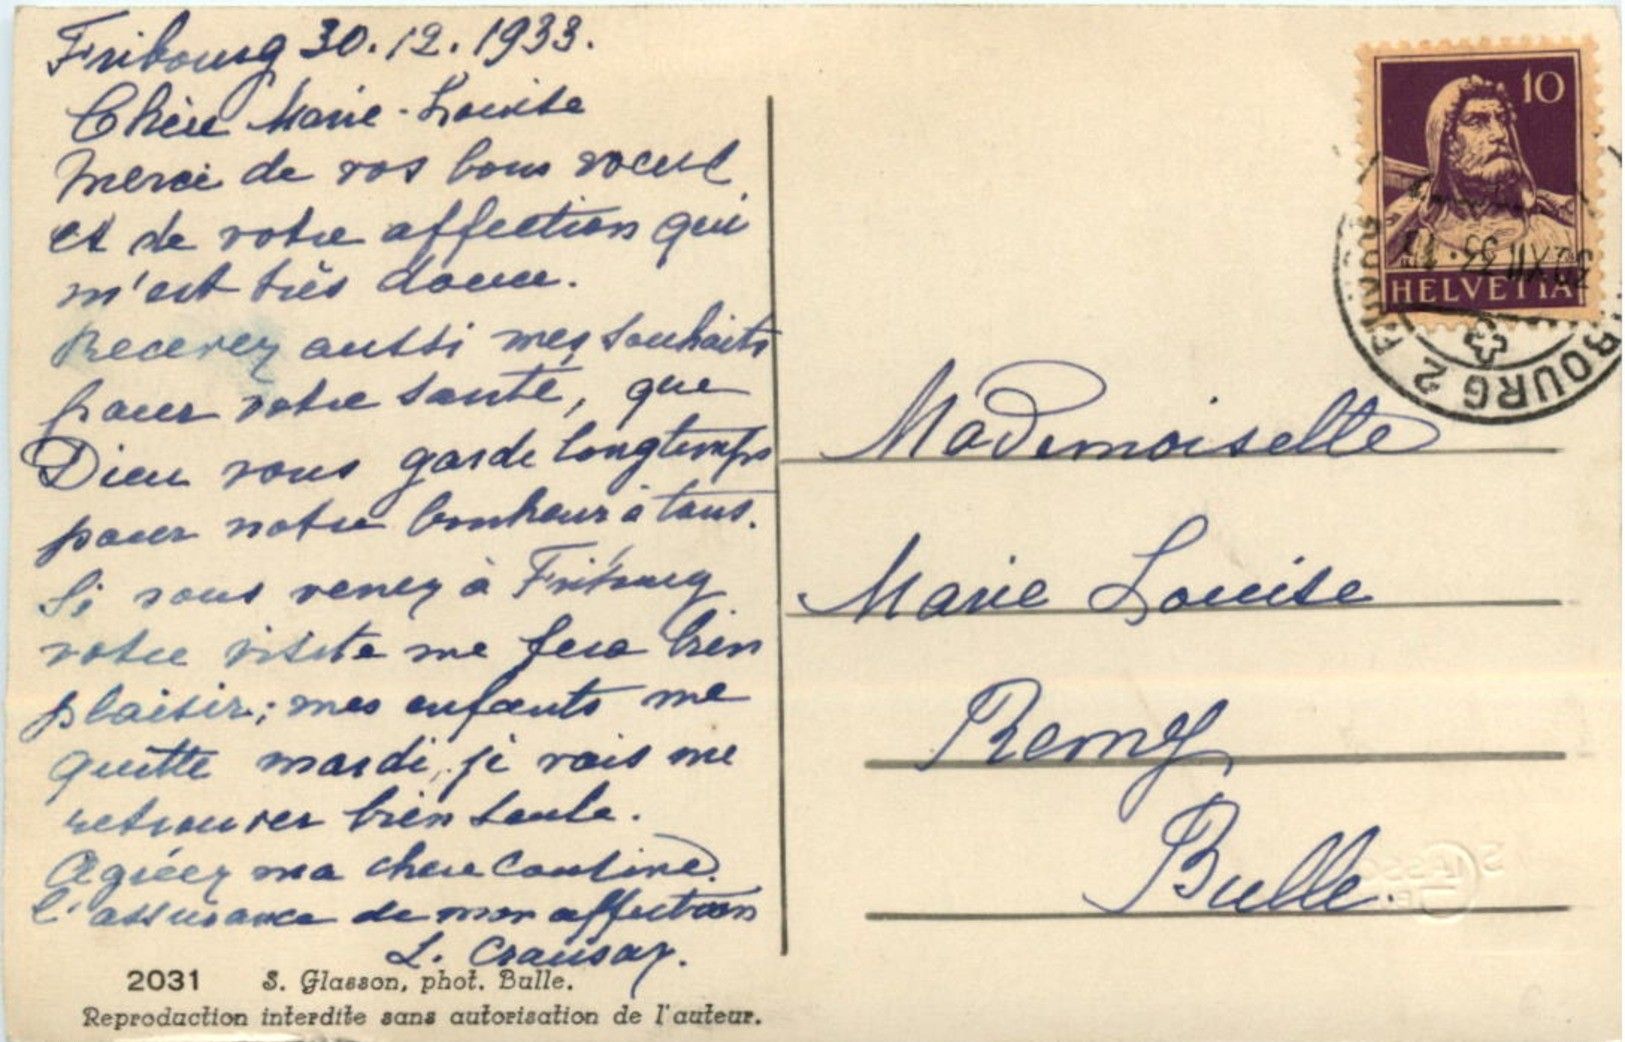 Fribourg 30.12.1933.
Chère Marie-Louise
Merci de vos bons voeux
et de votre affection qui
m'est très douce.
Recevez aussi mes souhaits
pour votre santé, que
Dieu vous garde longtemps
pour notre bonheur à tous.
Si vous venez à Fribourg
votre visite me fera bien
plaisir; mes enfants me
quitte mardi, je vais me
retrouver bien seule.
Agréez ma chere Cousine
l'assurance de mon affection
L. Crausaz.
2031 S. Glasson, phot. Bulle.
Reproduction interdite sans autorisation de l'auteur.
10
HELVETIA
30.XII.33
BOURG 2
Mademoiselle
Marie Louise
Remy
Bulle.